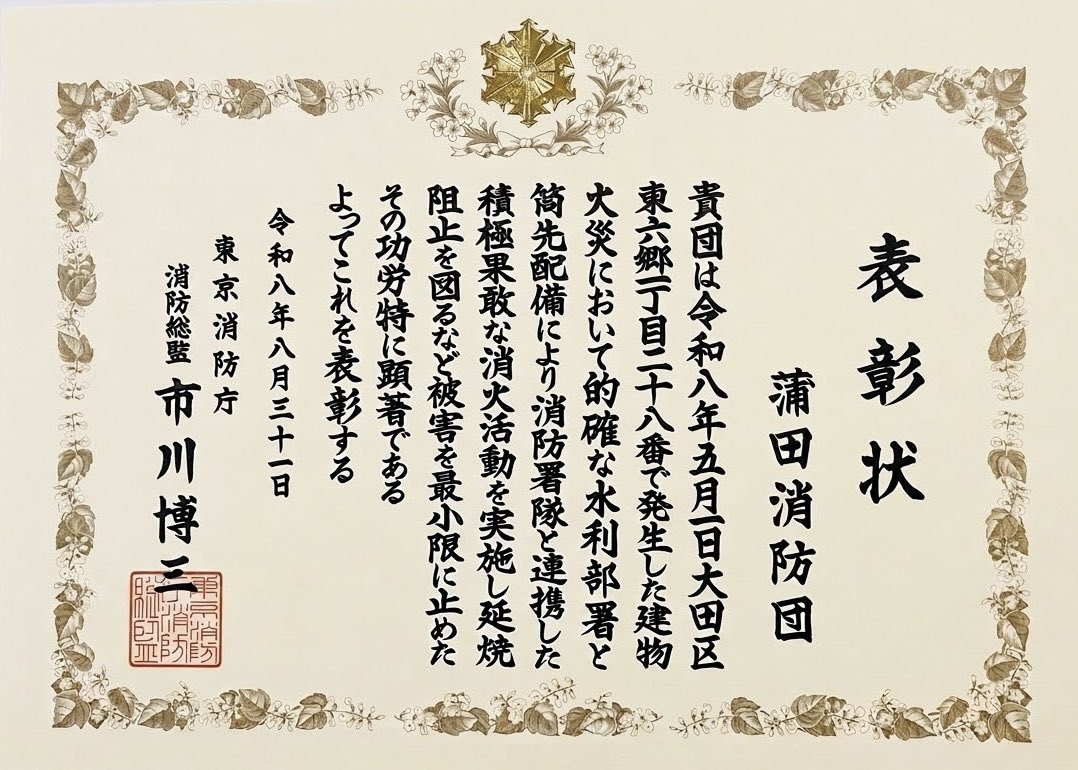 表彰状
蒲田消防団
貴団は令和八年五月一日大田区
東六郷一丁目二十八番で発生した建物
火災において的確な水利部署と
筒先配備により消防署隊と連携した
積極果敢な消火活動を実施し延焼
阻止を図るなど被害を最小限に止めた
その功労特に顕著である
よってこれを表彰する
令和八年八月三十一日
東京消防庁
消防総監 市川博三